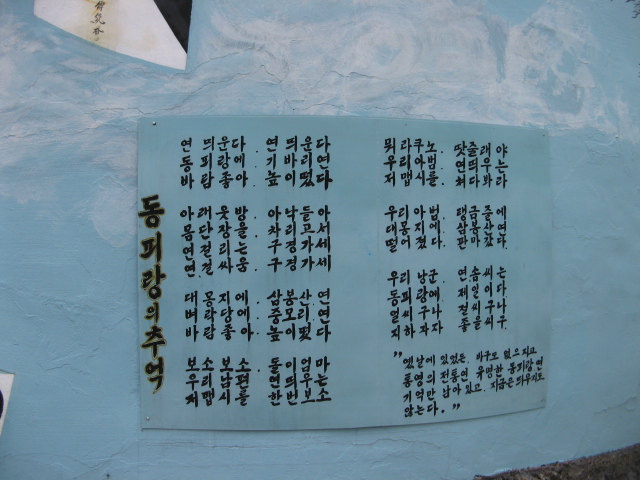 동피랑의 추억
연 띄운다 . 연 띄운다
동피랑에 . 기바리연
바람좋아 . 높이떴다
아래웃방 . 아낙들아
몸단장을 . 차리고서
연걸리는 . 구경가세
연걸싸움 . 구경가세
대목지에 . 삼봉산연
벼락당에 . 중모리연
바람좋아 . 높이떴다
보소보소 . 돌이엄마
우리남편 . 연띄우는
저맵시를 . 한번보소
뭐라쿠노 . 땃줄래야
우리아범 . 연띄우는
저맵시를 . 쳐다봐라
우리아범 . 탱금줄에
대목지에 . 삼봉산연
떨어졌다 . 판마갔다
우리낭군 . 연솜씨는
동피랑에 . 제일이다
얼씨구나 . 절씨구나
지하자자 . 좋을씨구
"옛날에 있었든 바구도 없으지고
통영의 전통연 유명한 동피랑연
기억만 남아 있고. 지금은 띄우지도
않는다."